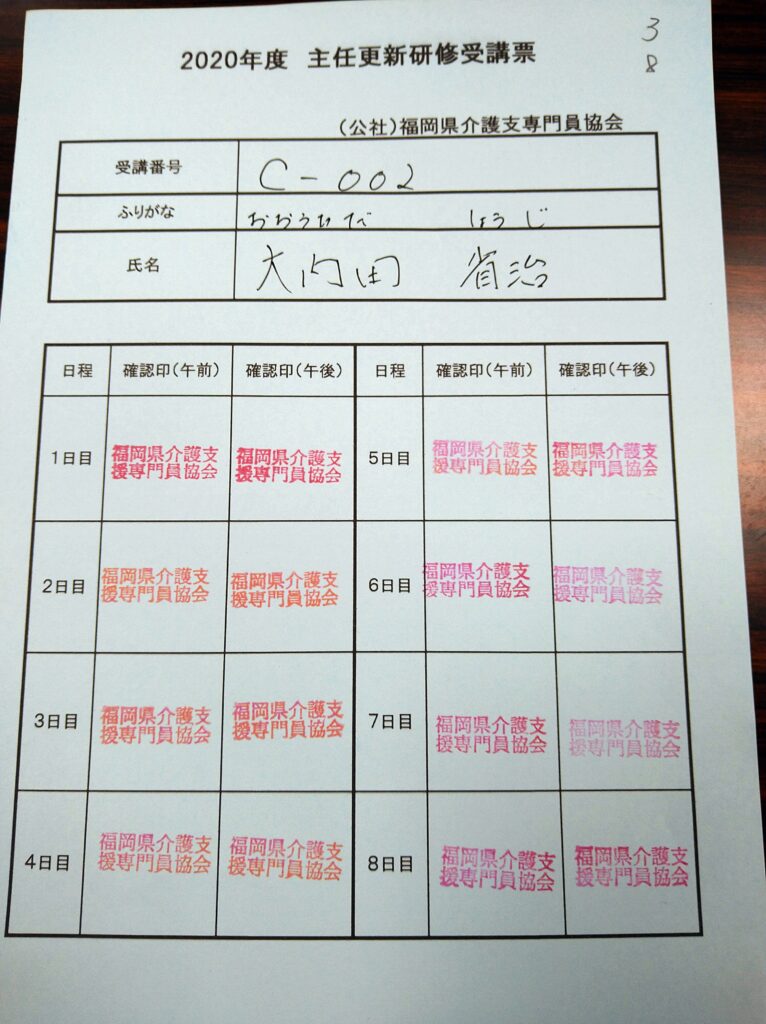 3
8
2020年度 主任更新研修受講票
(公社)福岡県介護支専門員協会
受講番号 C-002
ふりがな おおうちだ しょうじ
氏名 大内田 省治
日程 確認印(午前) 確認印(午後) 日程 確認印(午前) 確認印(午後)
1日目 福岡県介護支援専門員協会 福岡県介護支援専門員協会 5日目 福岡県介護支援専門員協会 福岡県介護支援専門員協会
2日目 福岡県介護支援専門員協会 福岡県介護支援専門員協会 6日目 福岡県介護支援専門員協会 福岡県介護支援専門員協会
3日目 福岡県介護支援専門員協会 福岡県介護支援専門員協会 7日目 福岡県介護支援専門員協会 福岡県介護支援専門員協会
4日目 福岡県介護支援専門員協会 福岡県介護支援専門員協会 8日目 福岡県介護支援専門員協会 福岡県介護支援専門員協会